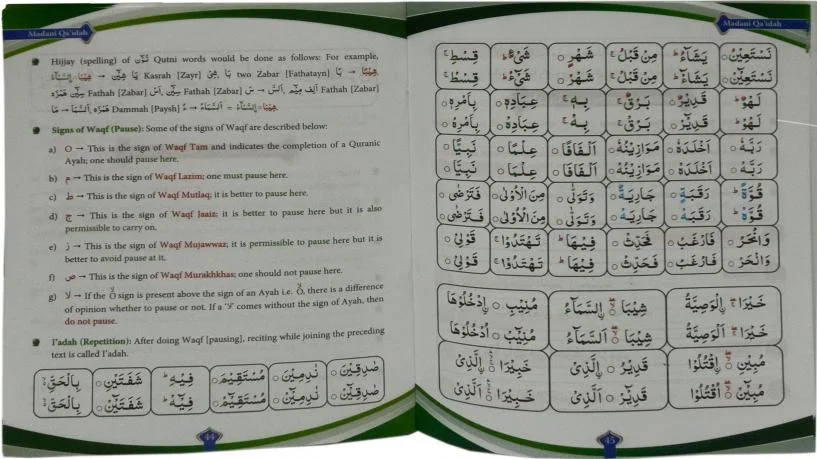 Madani Qa'idah
Hijjay (spelling) of قُطْنِيّ Qutni words would be done as follows: For example,
Kasrah [Zayr] two Zabar [Fathatayn]
Fathah [Zabar] Fathah [Zabar] Fathah [Zabar]
Dammah [Paysh]
Signs of Waqf (Pause): Some of the signs of Waqf are described below:
a) ○ → This is the sign of Waqf Tam and indicates the completion of a Quranic
Ayah; one should pause here.
b) م → This is the sign of Waqf Lazim; one must pause here.
c) ط → This is the sign of Waqf Mutlaq; it is better to pause here.
d) ج → This is the sign of Waqf Jaaiz; it is better to pause here but it is also
permissible to carry on.
e) ز → This is the sign of Waqf Mujawwaz; it is permissible to pause here but it is
better to avoid pause at it.
f) ص → This is the sign of Waqf Murakhkhas; one should not pause here.
g) لا → If the لا sign is present above the sign of an Ayah i.e. ○, there is a difference
of opinion whether to pause or not. If a 'لا' comes without the sign of Ayah, then
do not pause.
I'adah (Repetition): After doing Waqf [pausing], reciting while joining the preceding
text is called I'adah.
صٰدِقِيْنَ ○ نٰدِمِيْنَ ○ مُسْتَقِيْمَ ○ فِيْهِ ط شَفَتَيْنِ ○ بِالْحَقِّ
صٰدِقِيْنْ ○ نٰدِمِيْنْ ○ مُسْتَقِيْمْ ○ فِيْهْ ط شَفَتَيْنْ ○ بِالْحَقّْ
44
Madani Qa'idah
نَسْتَعِيْنُ ○ يَشَآءُ ط مِنْ قَبْلُ شَهْرٍ ○ شَيْءٍ قِسْطِ
نَسْتَعِيْنْ ○ يَشَآءْ ط مِنْ قَبْلْ شَهْرْ ○ شَيْءْ قِسْطْ
لَهُوَ ط قَدِيْرٌ ○ بَرْقٌ بِهٖ عِبَادِهٖ ○ بِاَمْرِهٖ
لَهُوْ ط قَدِيْرْ ○ بَرْقْ بِهْ عِبَادِهْ ○ بِاَمْرِهْ
رَبَّهٗ ○ اَخْلَدَهٗ ○ مَوَازِيْنُهٗ ○ اَلْفَافًا ○ عِلْمًا ○ نَبِيًّا
رَبَّهْ ○ اَخْلَدَهْ ○ مَوَازِيْنُهْ ○ اَلْفَافَا ○ عِلْمَا ○ نَبِيَّا
قُوَّةً ط رَقَبَةٍ ○ جَارِيَةٌ ○ وَتَوَلّٰى ○ مِنَ الْاُوْلٰى ○ فَتَرْضٰى ○
قُوَّهْ ط رَقَبَهْ ○ جَارِيَهْ ○ وَتَوَلّٰى ○ مِنَ الْاُوْلٰى ○ فَتَرْضٰى ○
وَانْحَرْ ○ فَارْغَبْ ○ فَحَدِّثْ ○ فِيْهَا ط تَهْتَدُوْا قَوْلِيْ ○
وَانْحَرْ ○ فَارْغَبْ ○ فَحَدِّثْ ○ فِيْهَا ط تَهْتَدُوْا قَوْلِيْ ○
خَيْرَا الْوَصِيَّةُ شِيْبَا السَّمَآءُ مُنِيْبِ ادْخُلُوْهَا
خَيْرَا اَلْوَصِيَّةُ شِيْبَا اَلسَّمَآءُ مُنِيْبْ اُدْخُلُوْهَا
مُبِيْنِ اقْتُلُوْا قَدِيْرُ الَّذِيْ خَبِيْرَا الَّذِيْ
مُبِيْنْ اُقْتُلُوْا قَدِيْرْ اَلَّذِيْ خَبِيْرَا اَلَّذِيْ
45